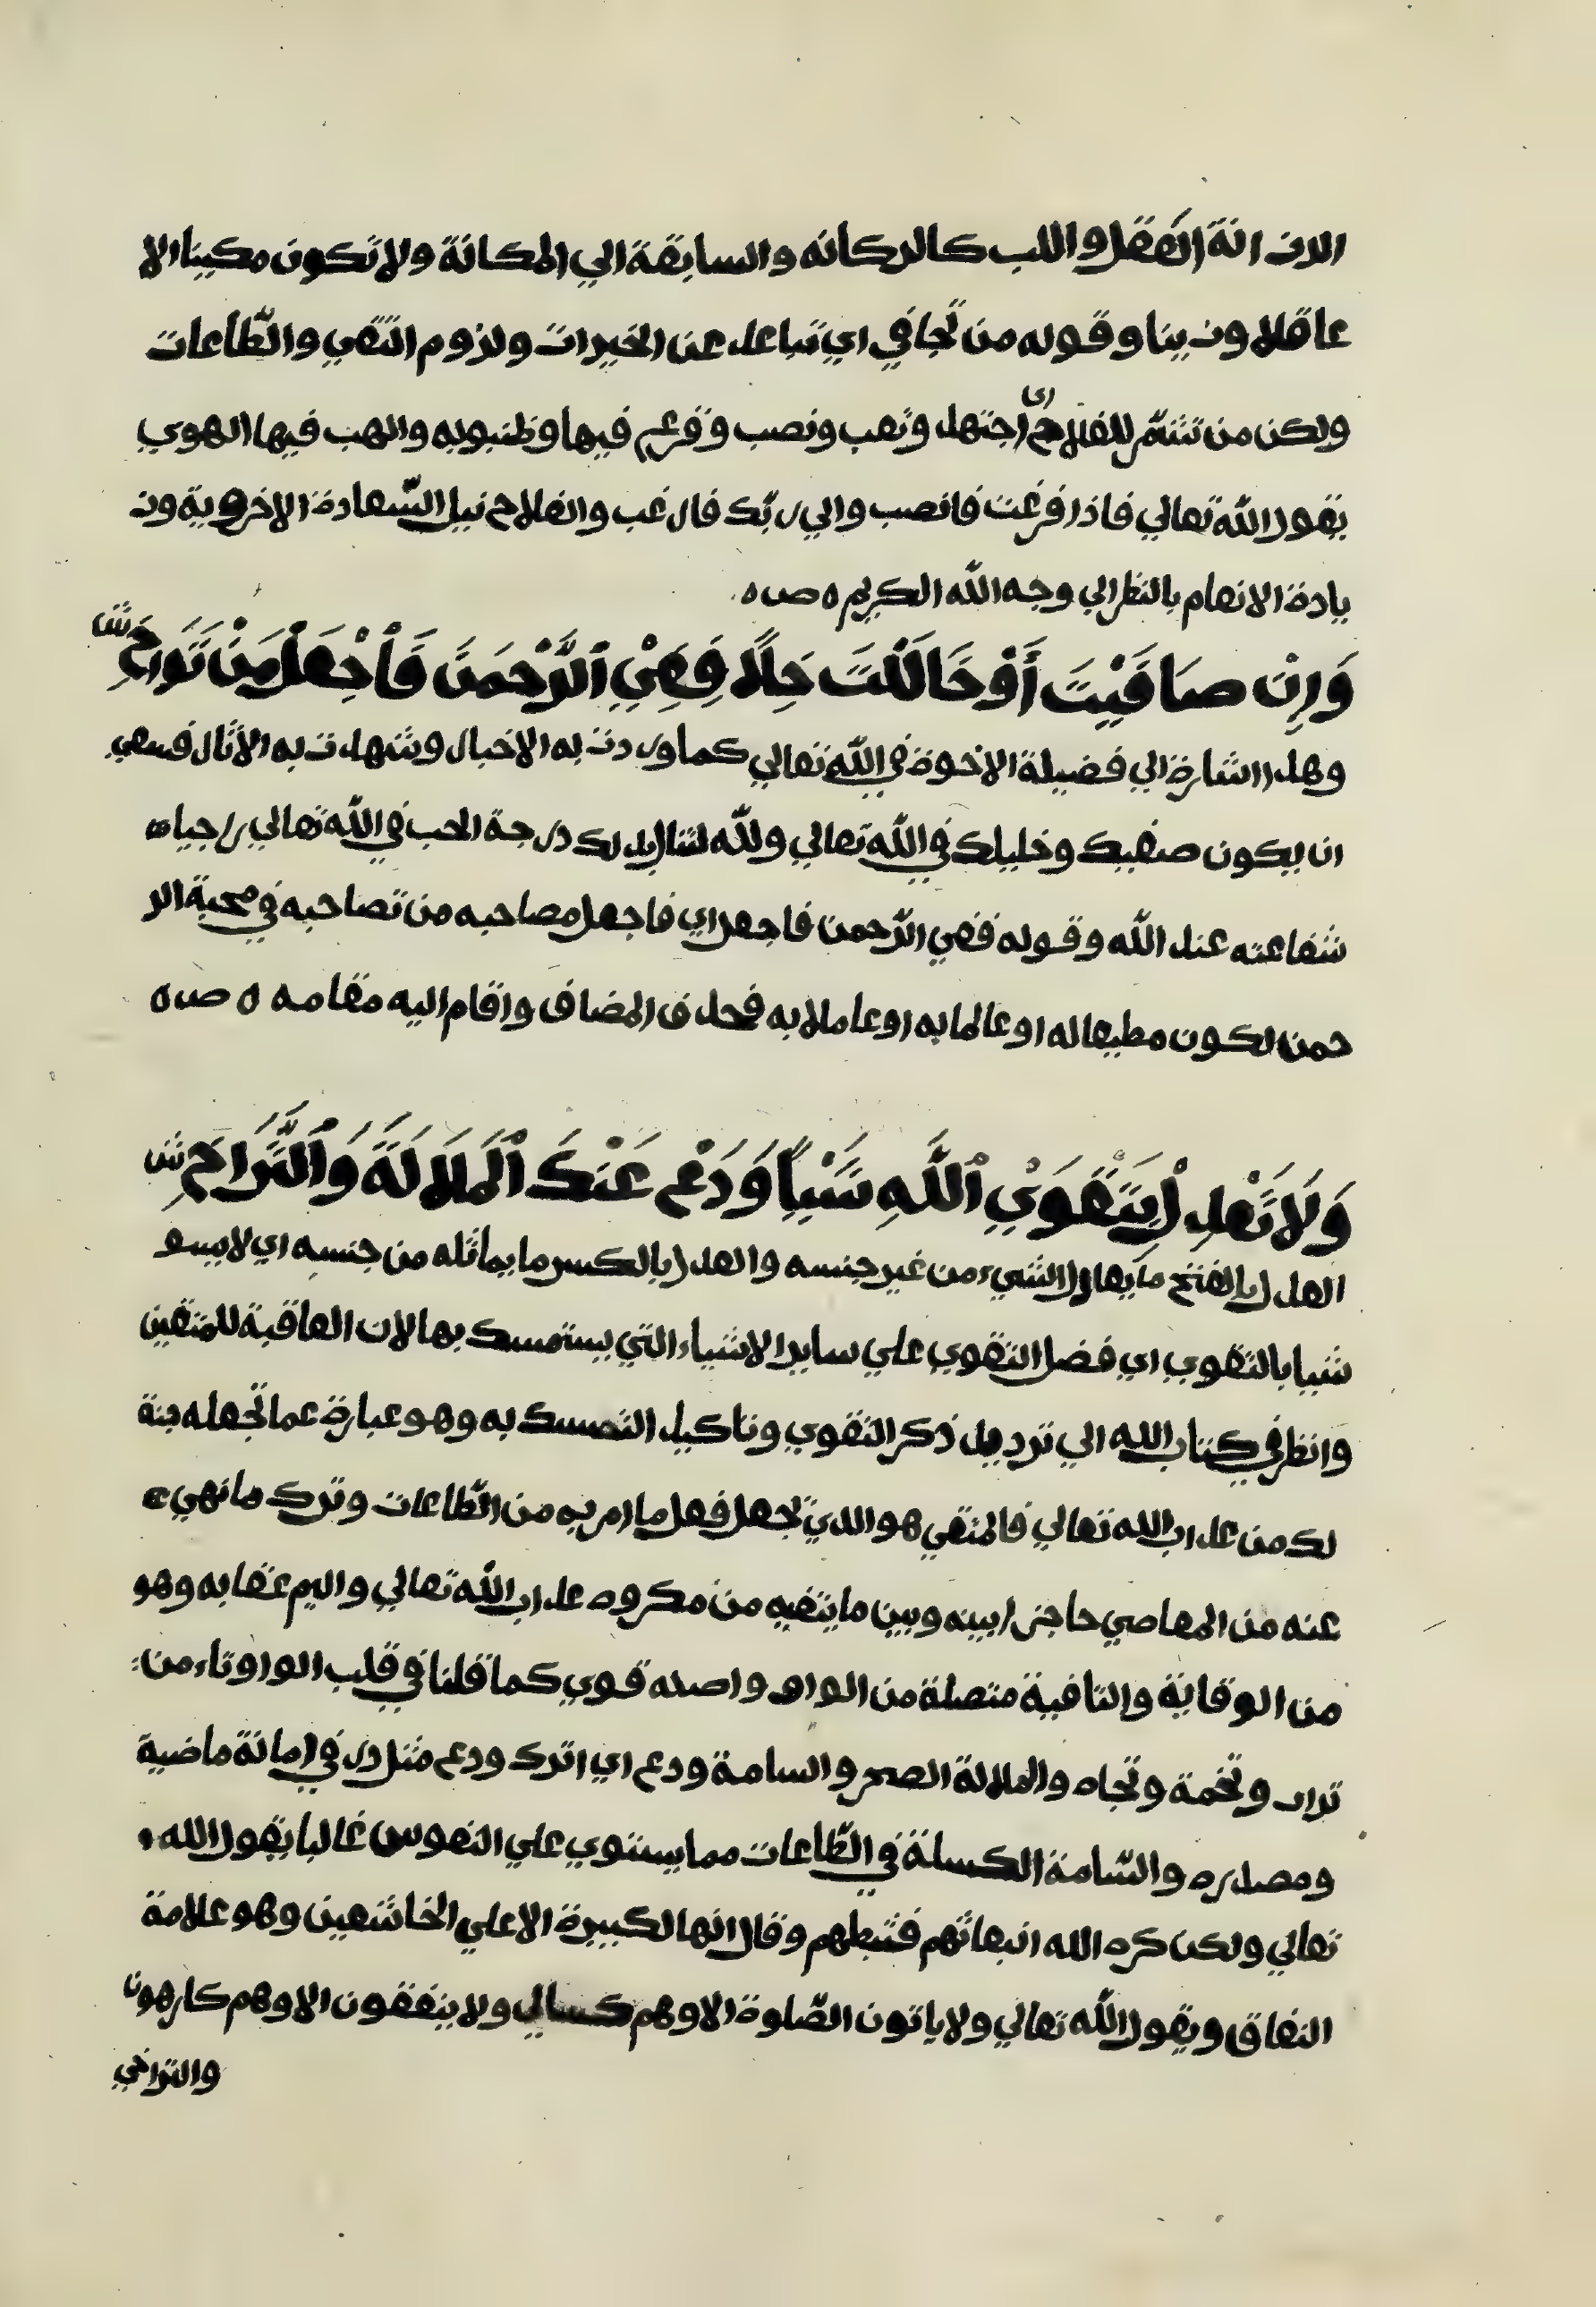 الانـ انة العقل واللب كالركانه والسابقة الي المكانة ولا تكون مكينا الا
عاقلا ونـ ينا وقوله من تجافي اي تباعد عن الخيرات ولزوم التقي والطّاعات
ولكن من تشمّر للفلاح اي اجتهد وتعب ونصب وفرغ فيها وظنبوبه والهب فيها الهوي
يقول اللّه تعالي فاذا فرغت فانصب والي ربّك فارغب والفلاح نيل السّعادة الاخروية ونـ
يادة الانعام بالنظر الي وجه اللّه الكريم ٥ ص ٥
وَإِنْ صَافَيْتَ أَوْ خَالَلْتَ خِلًّا فَفِيْ ٱلرَّحْمَنِ فَٱجْعَلْ مَنْ تُوَاخِ ش
وهذا اشارة الي فضيلة الاخوة في اللّه تعالي كما وردت به الاخبار وشهدت به الآثار فينبغي
ان يكون صفيك وخليلك في اللّه تعالي وللّه لتنال بذلك درجة الحب في اللّه تعالي راجياه
شفاعته عند اللّه وقوله ففي الرّحمن فاجعل اي فاجعل مصاحبه من تصاحبه في محبة الر
حمن لكون مطيعا له او عالما به او عاملا به فحذف المضاف واقام اليه مقامه ٥ ص ٥
وَلَا تَعْدِلْ بِتَقْوَيْ ٱللَّهِ شَيْئًا وَدَعْ عَنْكَ ٱلْمَلَالَةَ وَٱلتَّرَاخِ ش
العدل بالفتح ما يعادل الشيء من غير جنسه والعدل بالكسر ما يماثله من جنسه اي لا يسو
شيا بالتقوي اي فضل التقوي علي ساير الاشياء التي يستمسك بها لان العاقبة للمتقين
وانظر في كتاب اللّه الي ترديد ذكر التقوي وتاكيد التمسك به وهو عبارة عما تجعله جنة
لك من عذاب اللّه تعالي فالمتقي هو الذي يجعل فعل ما امر به من الطّاعات وترك ما نهي ء
عنه من المعاصي حاجزا بينه وبين ما يتقيه من مكروه عذاب اللّه تعالي واليم عقابه وهو
من الوقاية والتا فية متصلة من الواو واصله قوي كما قلنا في قلب الواو تاء من
تراث وتخمة وتجاه والملالة الضجر والسامة ودع اي اترك ودع مثل ذر في امانة ماضية
ومصدره والسّامة الكسلة في الطّاعات مما يستوي علي النفوس غالبا يقول اللّه
تعالي ولكن كره اللّه انبعاثهم فثبطهم وقال انها لكبيرة الا علي الخاشعين وهو علامة
النفاق ويقول اللّه تعالي ولا ياتون الصّلوة الا وهم كسالي ولا ينفقون الا وهم كارهون
والتراخي